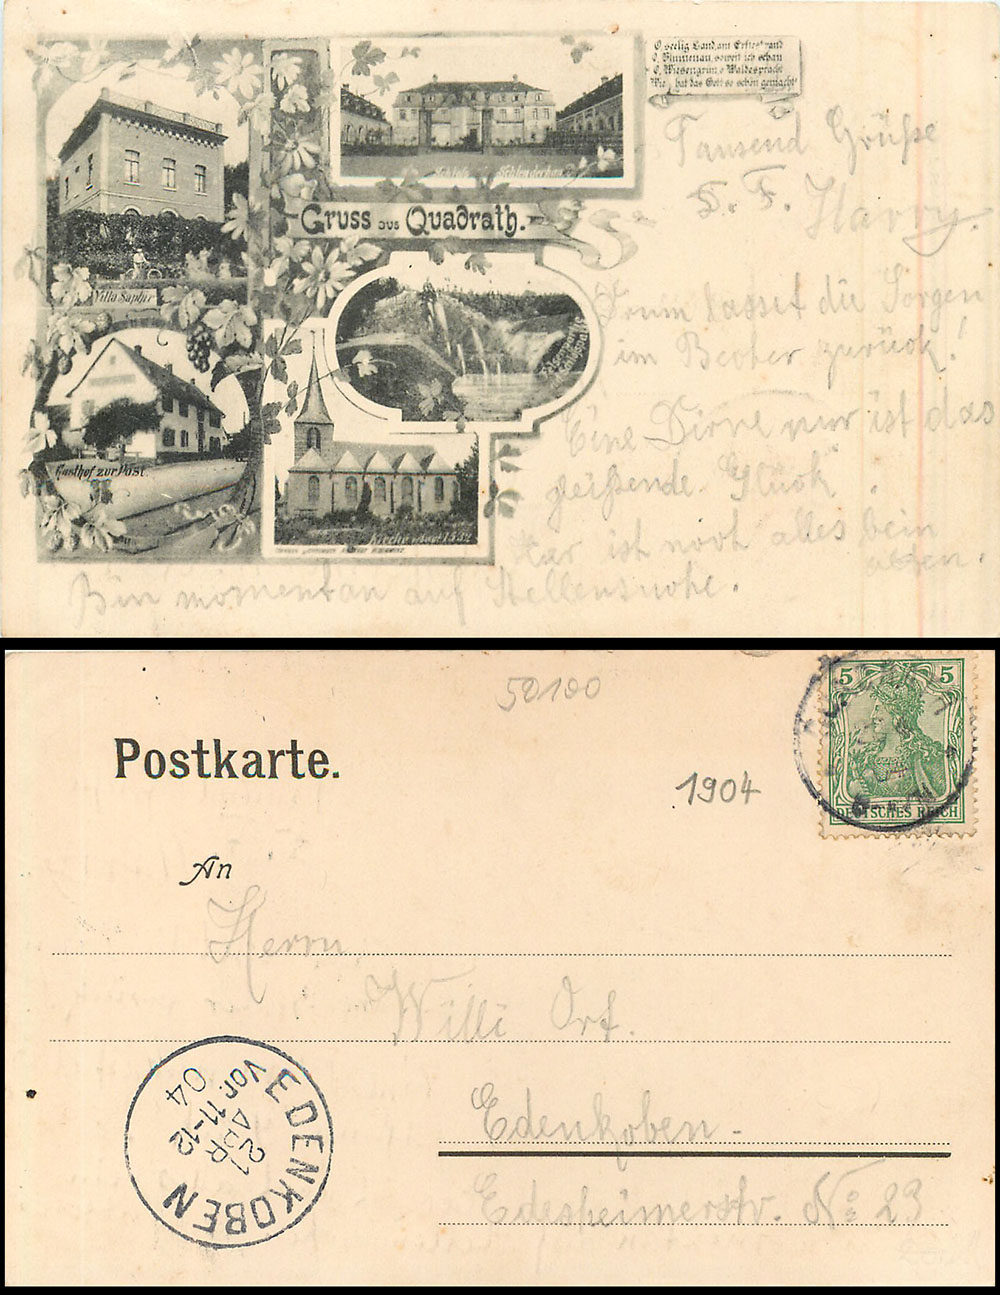 O seelig Land, am Erftestrand
O, Blumenau, soweit ich schau
O, Wiesengrün, o Waldespracht
Wie hat das Gott so schön gemacht!
Schloss Schlenderhan
Gruss aus Quadrath.
Villa Saphir
Gasthof zur Post.
Kirche erbaut 1532
Tausend Grüße
H. Harry.
Drum lasset die Sorgen
im Becher zurück!
Eine Dirne nur ist das
gleißende Glück".
Hier ist noch alles beim
alten.
Bin momentan auf Stellensuche.
50100
Postkarte.
1904
5 5
DEUTSCHES REICH
An
Herrn
Willi Ort.
Edenkoben -
Edesheimerstr. No 23
EDENKOBEN
21
APR
VOR. 11-12
04